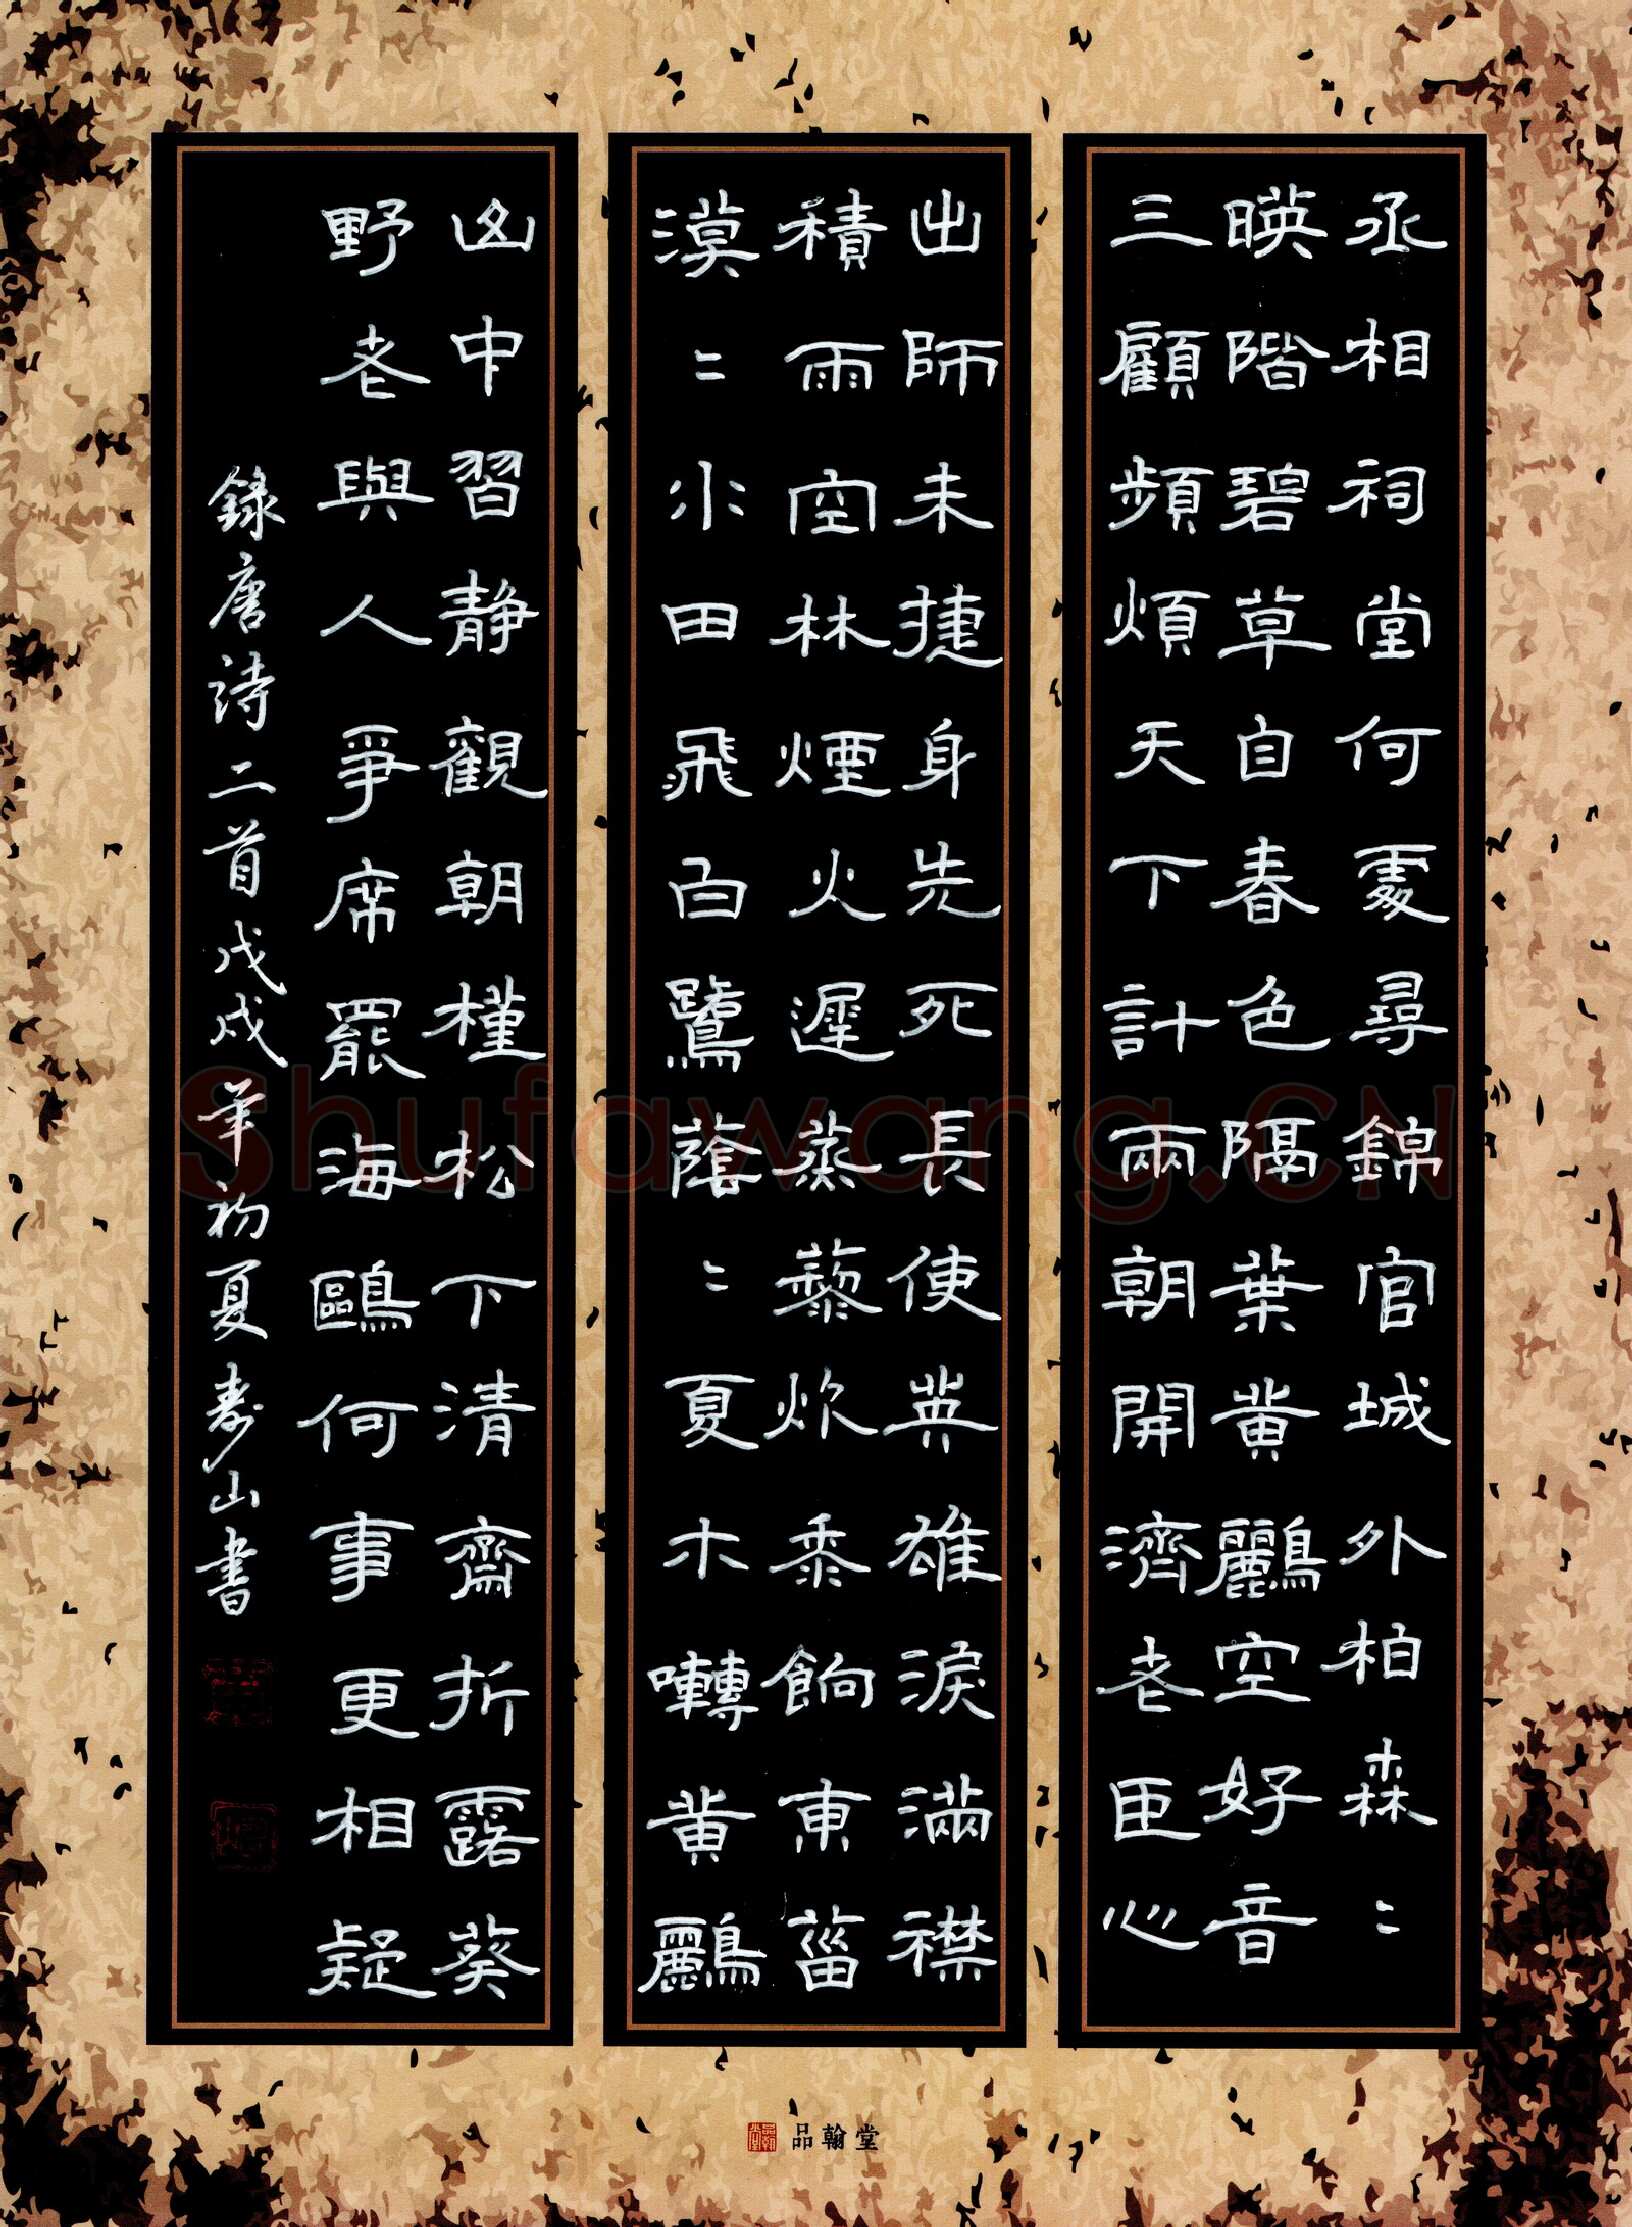 丞相祠堂何處尋錦官城外柏森〻
暎階碧草自春色隔葉黄鸝空好音
三顧頻煩天下計兩朝開濟老臣心
出師未捷身先死長使英雄淚滿襟
積雨空林煙火遲蒸藜炊黍餉東菑
漠〻水田飛白鷺蔭〻夏木囀黄鸝
山中習静觀朝槿松下清齋折露葵
野老與人爭席罷海鷗何事更相疑
錄唐詩二首戊戌年初夏壽山書
Shufawang.CN
品翰堂